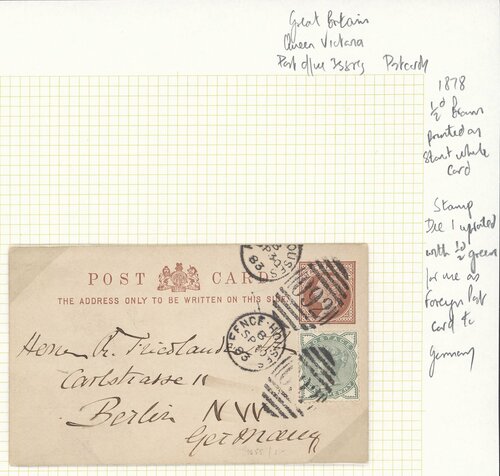 Great Britain
Queen Victoria
Post office Issues Postcards
1878
½d Brown
printed on
Stout white
card
Stamp
Die 1 uprated
with ½d green
for use as
Foreign Post
Card to
Germany
POST CARD
THE ADDRESS ONLY TO BE WRITTEN ON THIS SIDE
Herrn R. Friedlander
Carlstrasse 11
Berlin NW
Germany
SP 30
83